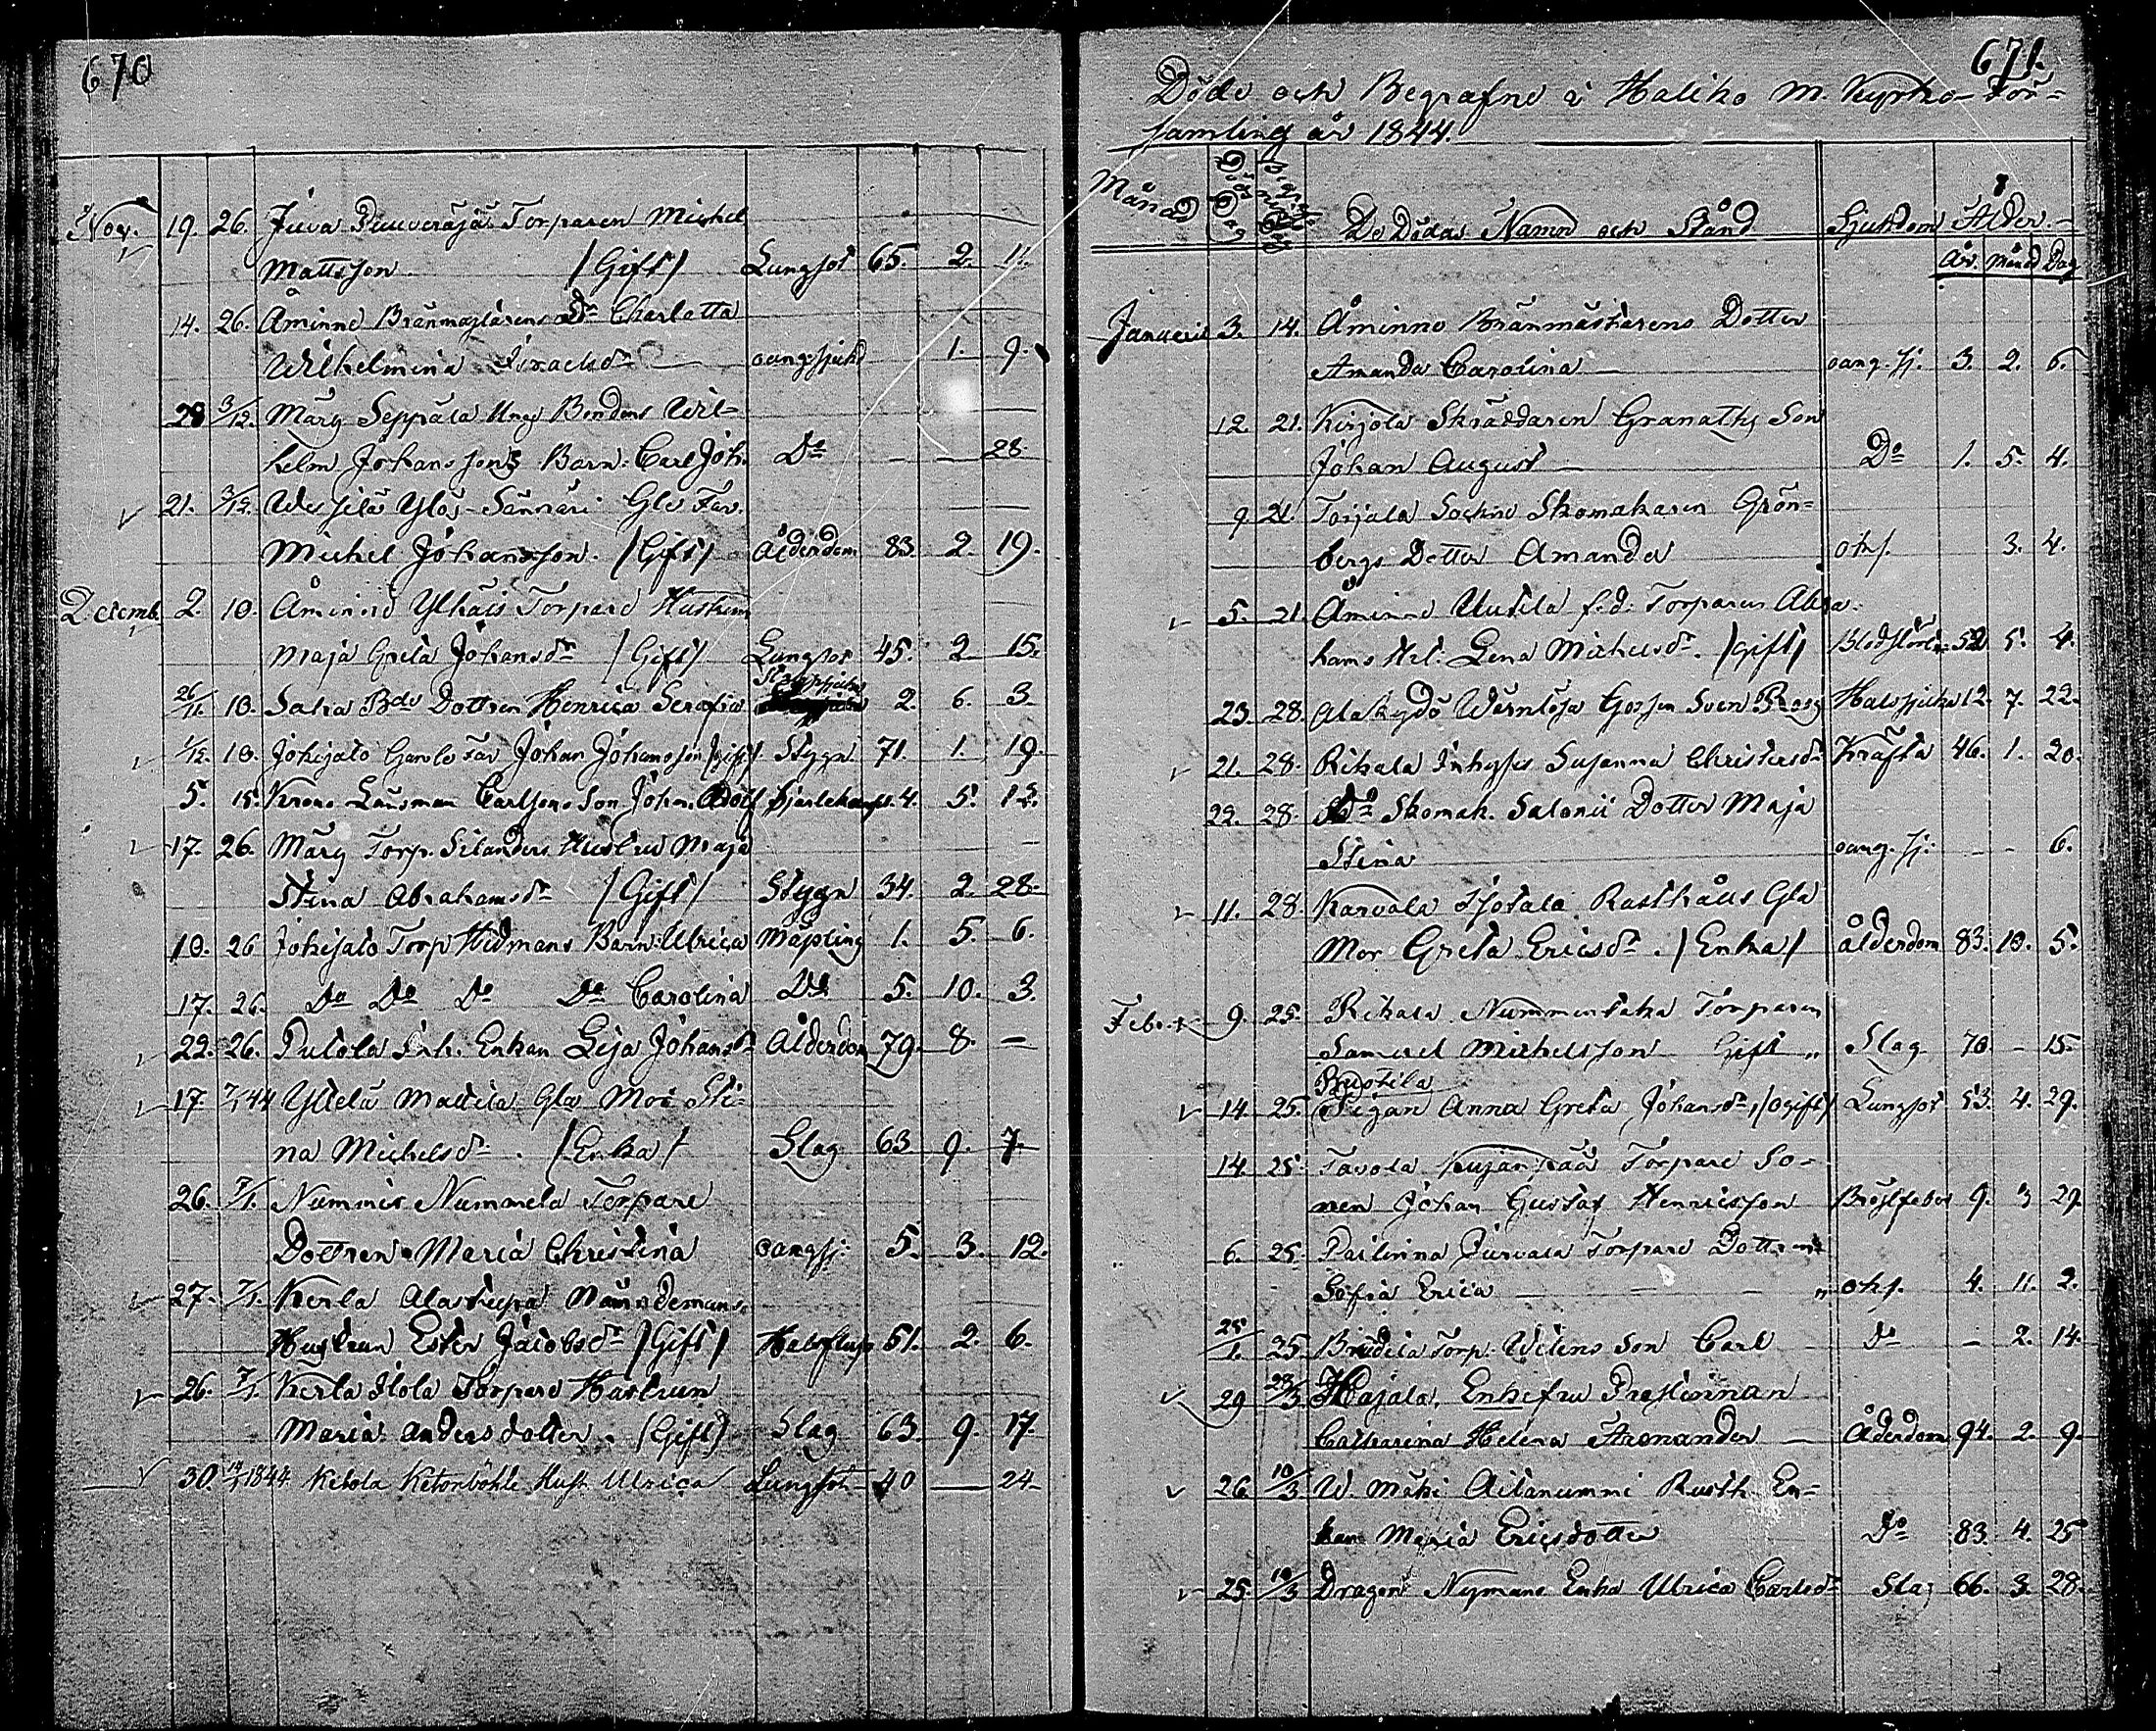 670
Nov. 19. 26. Juva Torparen Michel
Mattsson /Gift/ Lungsot 65. 2. 11.
14. 26. Åminne Brännmästarens Dr Charlotta
Wilhelmina oangifsjukd 1. 9.
28 3/12. Märy Seppälä Unge Bondens Wil=
helm Johanssons Barn: Carl Joh. Do — — 28.
21. 3/12. Ylös-Sännäri Gle Far.
Michel Johansson. /Gift/ Ålderdom 83. 2. 19.
Decemb. 2. 10. Åminne Torpare Hustrun
Maja Greta Johansdr /Gift/ Lungsot 45. 2 15.
26/11. 10. Saha Bde Dottren Henrica Serafia 2. 6. 3.
1/12. 10. Johijalo Gamle Far Johan Johansson /gift/ Stygn 71. 1. 19.
5. 15. Krono Länsman Carlsons Son John. Adolf 4. 5. 12.
17. 26. Märy Torp. Silanders Hustru Maja
Stina Abrahamsdr /Gift/ Stygn 34. 2. 28.
10. 26 Jokijalo Torp Widmans Barn: Ulrica Mäsling 1. 5. 6.
17. 26. Do Do Do Do Carolina Do 5. 10. 3.
22. 26. Pulola Inh. Enkan Lisa Johansdr Ålderdom 79. 8. —
17 7/1 44 Mattila Gla Mor Sti=
na Michelsdr. /Enka/ Slag 63 9. 7.
26. 7/1. Nummis Nummela Torpare
Dottren Maria Christina oangsj: 5. 3. 12.
27. 7/1. Kerla Alastupa Nämndemans.
Hustrun Ester Jacobsdr /Gift/ Halsfluss 51. 2. 6.
26. 7/1. Kerla Ilola Torpare Hustrun
Maria Andersdotter. /Gift/ Slag 63. 9. 17.
30. 14/1 1844 Ketola Hust Ulrica Lungsot 40 — 24
671.
Döde och Begrafne i Haliko M. Kyrko-För=
samling år 1844.
Månad De Dödas Namn och Stånd Sjukdom Ålder.
År. Månad Dag
Januarii 3. 14. Åminne Brännmästarens Dotter
Amanda Carolina oang. sj. 3. 2. 6.
12. 21. Kirjola Skräddaren Granaths Son
Johan August Do 1. 5. 4.
9. 21. Torjala Sockne Skomakaren Grön=
bergs Dotter Amanda 3. 4.
5. 21. Åminne Uutela f.d. Torparen Abra
hams Lena Michelsdr. /gift/ 52 5. 4.
23. 28. Alakydö Wärnlösa Gossen Sven Halssjuka 12. 7. 22.
21. 28. Rikala Inhyses Susanna Christersdr Kräfta 46. 1. 20.
22. 28. Do Skomak. Salonii Dotter Maja
Stina oang. sj: — — 6.
11. 28. Karvala Rusthålls Gla
Mor Greta Ericsdr. /Enka/ Ålderdom 83. 10. 5.
Febr. 9. 25. Rikala Torparen
Samuel Michelsson Gift „ Slag 70 — 15.
14. 25. Pigan Anna Greta Johansdr, /ogift/ Lungsot 53. 4. 29.
14 25. Tavola Torpare So=
nen Johan Gustaf Henricsson Bröstfeber 9. 3 29.
6. 25. Pailinna Torpare Dottren
Sofia Erica 4. 11. 2.
25/1. 25 Torp. Son Carl Do — 2. 14.
29 Hajala, Enkefru Prostinnan
Catharina Helena Ålderdom 94. 2. 9.
26 10/3 W. Mäki Aitanummi Rusth. En=
kan Maria Ericsdotter Do 83. 4. 25
25 10/3 Dragon Nymans Enka Ulrica Carlsdr Slag 66. 3. 28.